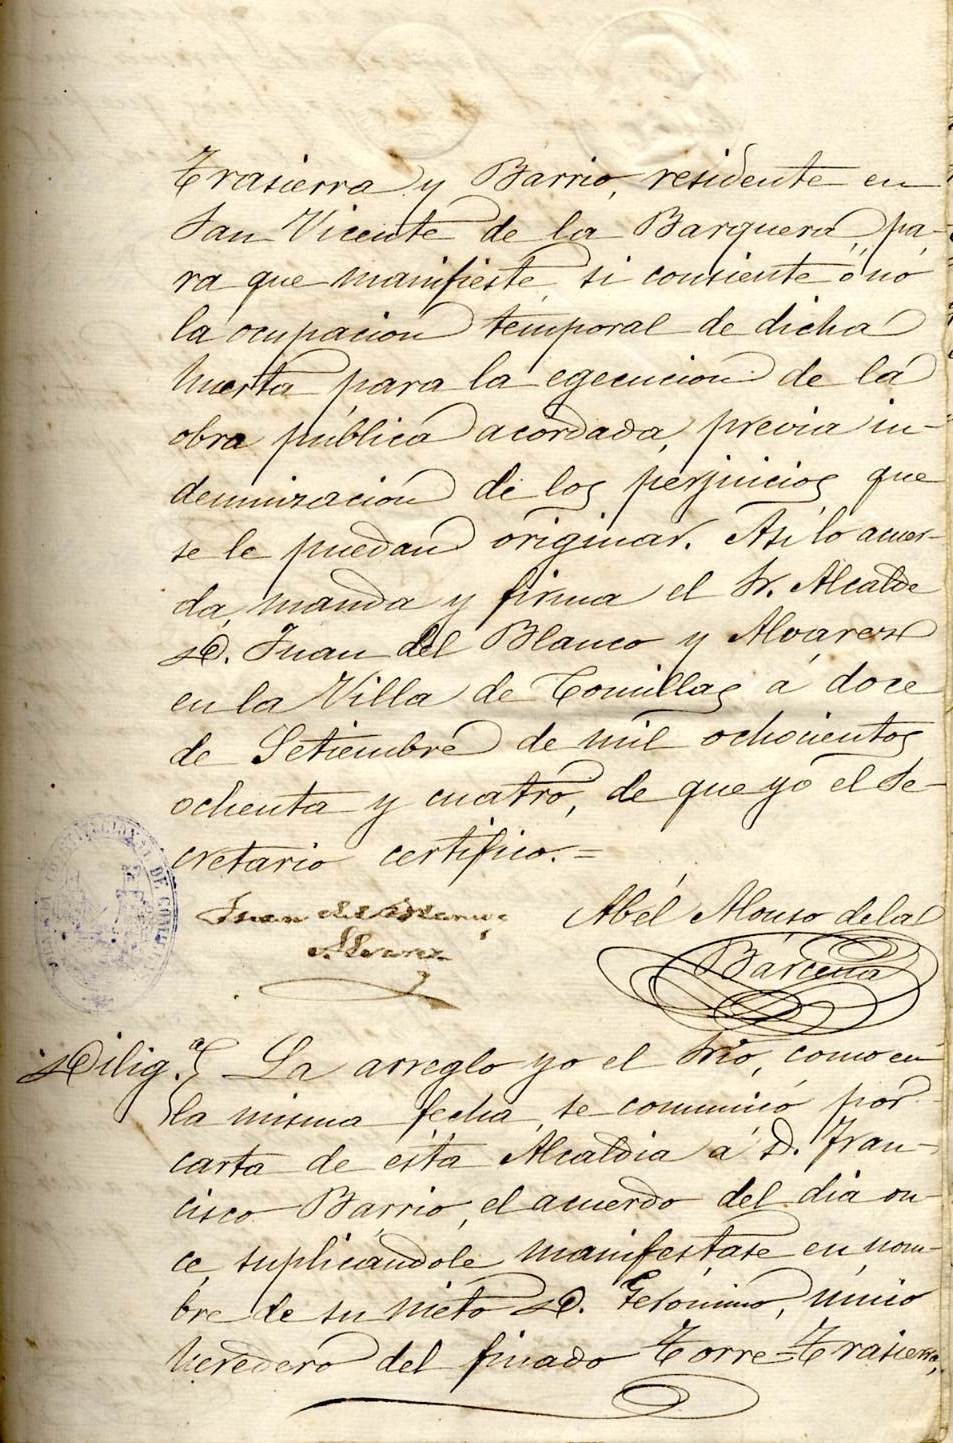 Trasierra y Barrio, residente en
San Vicente de la Barquera, pa-
ra que manifieste si consiente ó nó
la ocupacion temporal de dicha
huerta para la egecucion de la
obra pública acordada, previa in-
demnizacion de los perjuicios que
se le puedan originar. Asi lo acuer-
da, manda y firma el Sr. Alcalde
D. Juan del Blanco y Alvarez
en la Villa de Comillas á doce
de Setiembre de mil ochocientos
ochenta y cuatro, de que yo el Se-
cretario certifico.=
Juan del Blanco Abél Alonso de la
Alvarez Bárcena
CONSTITUCIONAL DE COMILLAS
Dilig.ª La arreglo yo el Srio, como en
la misma fecha, se comunicó por
carta de esta Alcaldia á D. Fran-
cisco Barrio, el acuerdo del dia on-
ce, suplicándole manifestase en nom-
bre de su nieto D. Gerónimo, único
heredero del finado Torre-Trasierra,